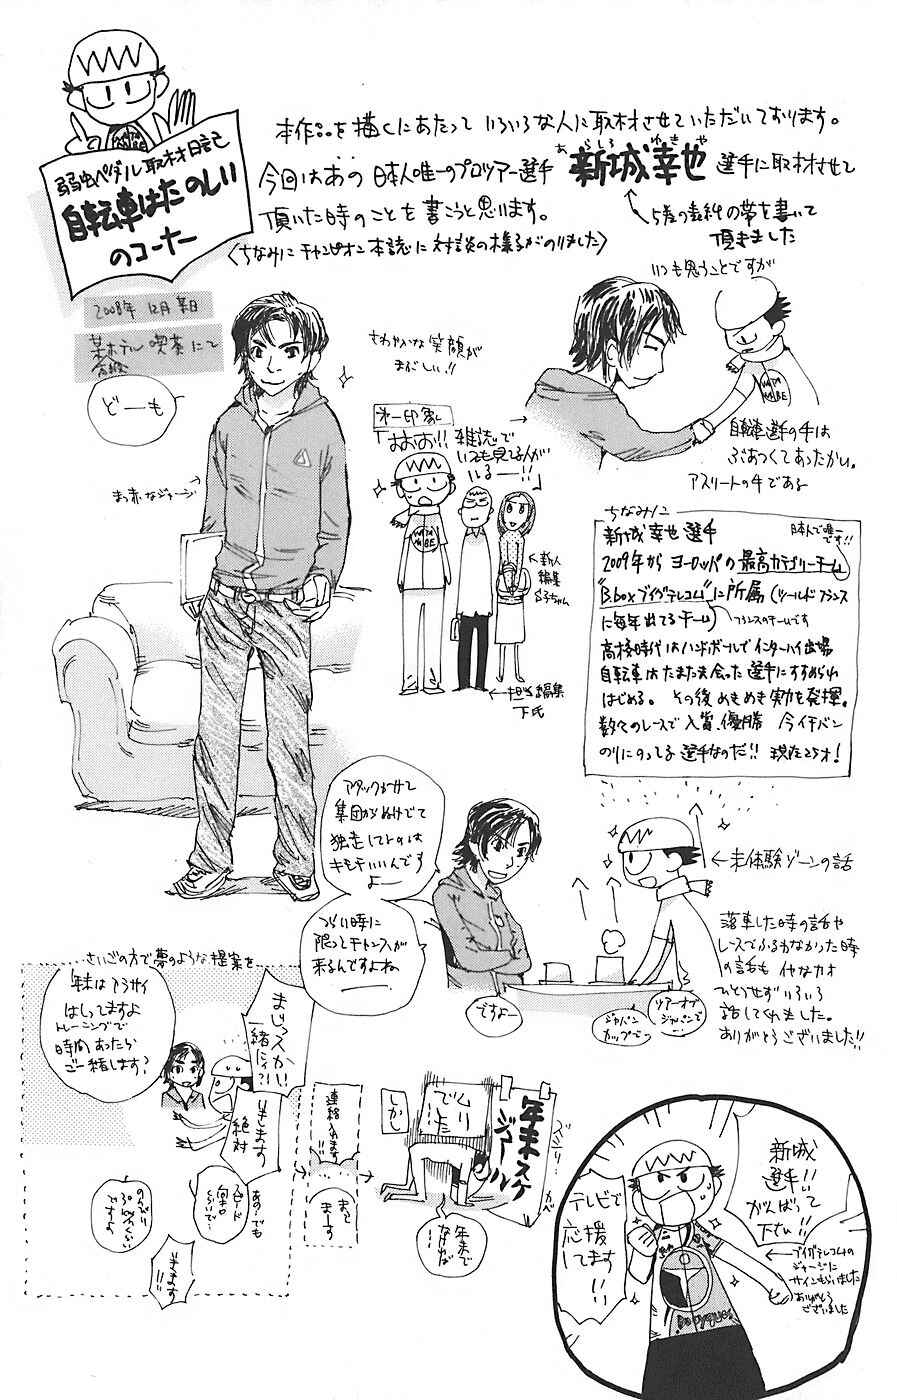 弱虫ペダル取材日記
自転車はたのしい
のコーナー
本作品を描くにあたって いろいろな人に取材させていただいております。
今回はあの 日本人唯一のプロツアー選手 新城幸也 選手に取材させて
あらしろ ゆきや
頂いた時のことを書こうと思います。
〈ちなみに チャンピオン本誌に 対談の様子がのりました〉
5巻の最終の帯を書いて
頂きました
2008年 12月 某日
某ホテル 喫茶にて
どーも
まっ赤なジャージ
さわやかな 笑顔が
まぶしい!!
いつも思うことですが
自転車選手の手は
ぶあつくてあったかい。
アスリートの手である
第一印象
「おおお!! 雑誌で
いつも見てる人が
いるーー!!」
新人
編集
担当編集
下氏
ちなみに
新城 幸也 選手
日本人で唯一
です!!
2009年から ヨーロッパの 最高カテゴリーチーム
"Bbox ブイグテレコム"に所属 (ツールドフランス
に毎年出てるチーム)
フランスのチームです
高校時代はハンドボールでインターハイ出場
自転車はたまたま会った選手にすすめられ
はじめる。 その後めきめき実力を発揮。
数々のレースで入賞、優勝 今イチバン
のりにのってる選手なのだ!! 現在25才!
アタックかけて
集団からぬけでて
独走してトのは
キモチいいんです
よー
つらい時に
限ってチャンスが
来るんですよね
ですよー
ジャパン
カップでー
ツアーオブ
ジャパンでー
←未体験ゾーンの話
落車した時の話や
レースでふるわなかった時
の話も イヤなカオ
ひとつせず いろいろ
話してくれました。
ありがとうございました!!
さいごの方で夢のような提案を
年末はアラサイ
はしってますよ
トレーニングで
時間あったら
ご一緒します?
まじっスかい
一緒に!?
いきます
絶対
あ、でも
スピード
のんびり
30kmくらい
ですよ
いきます!!
連絡入れます
まってまーす
しかし
ムリでした
年末スケジュール
年末で
なければ
新城
選手!!
がんばって
下さい!!
テレビで
応援
してます
!!
←ブイグテレコムの
ジャージに
サインもらいました
ありがとう
ございました